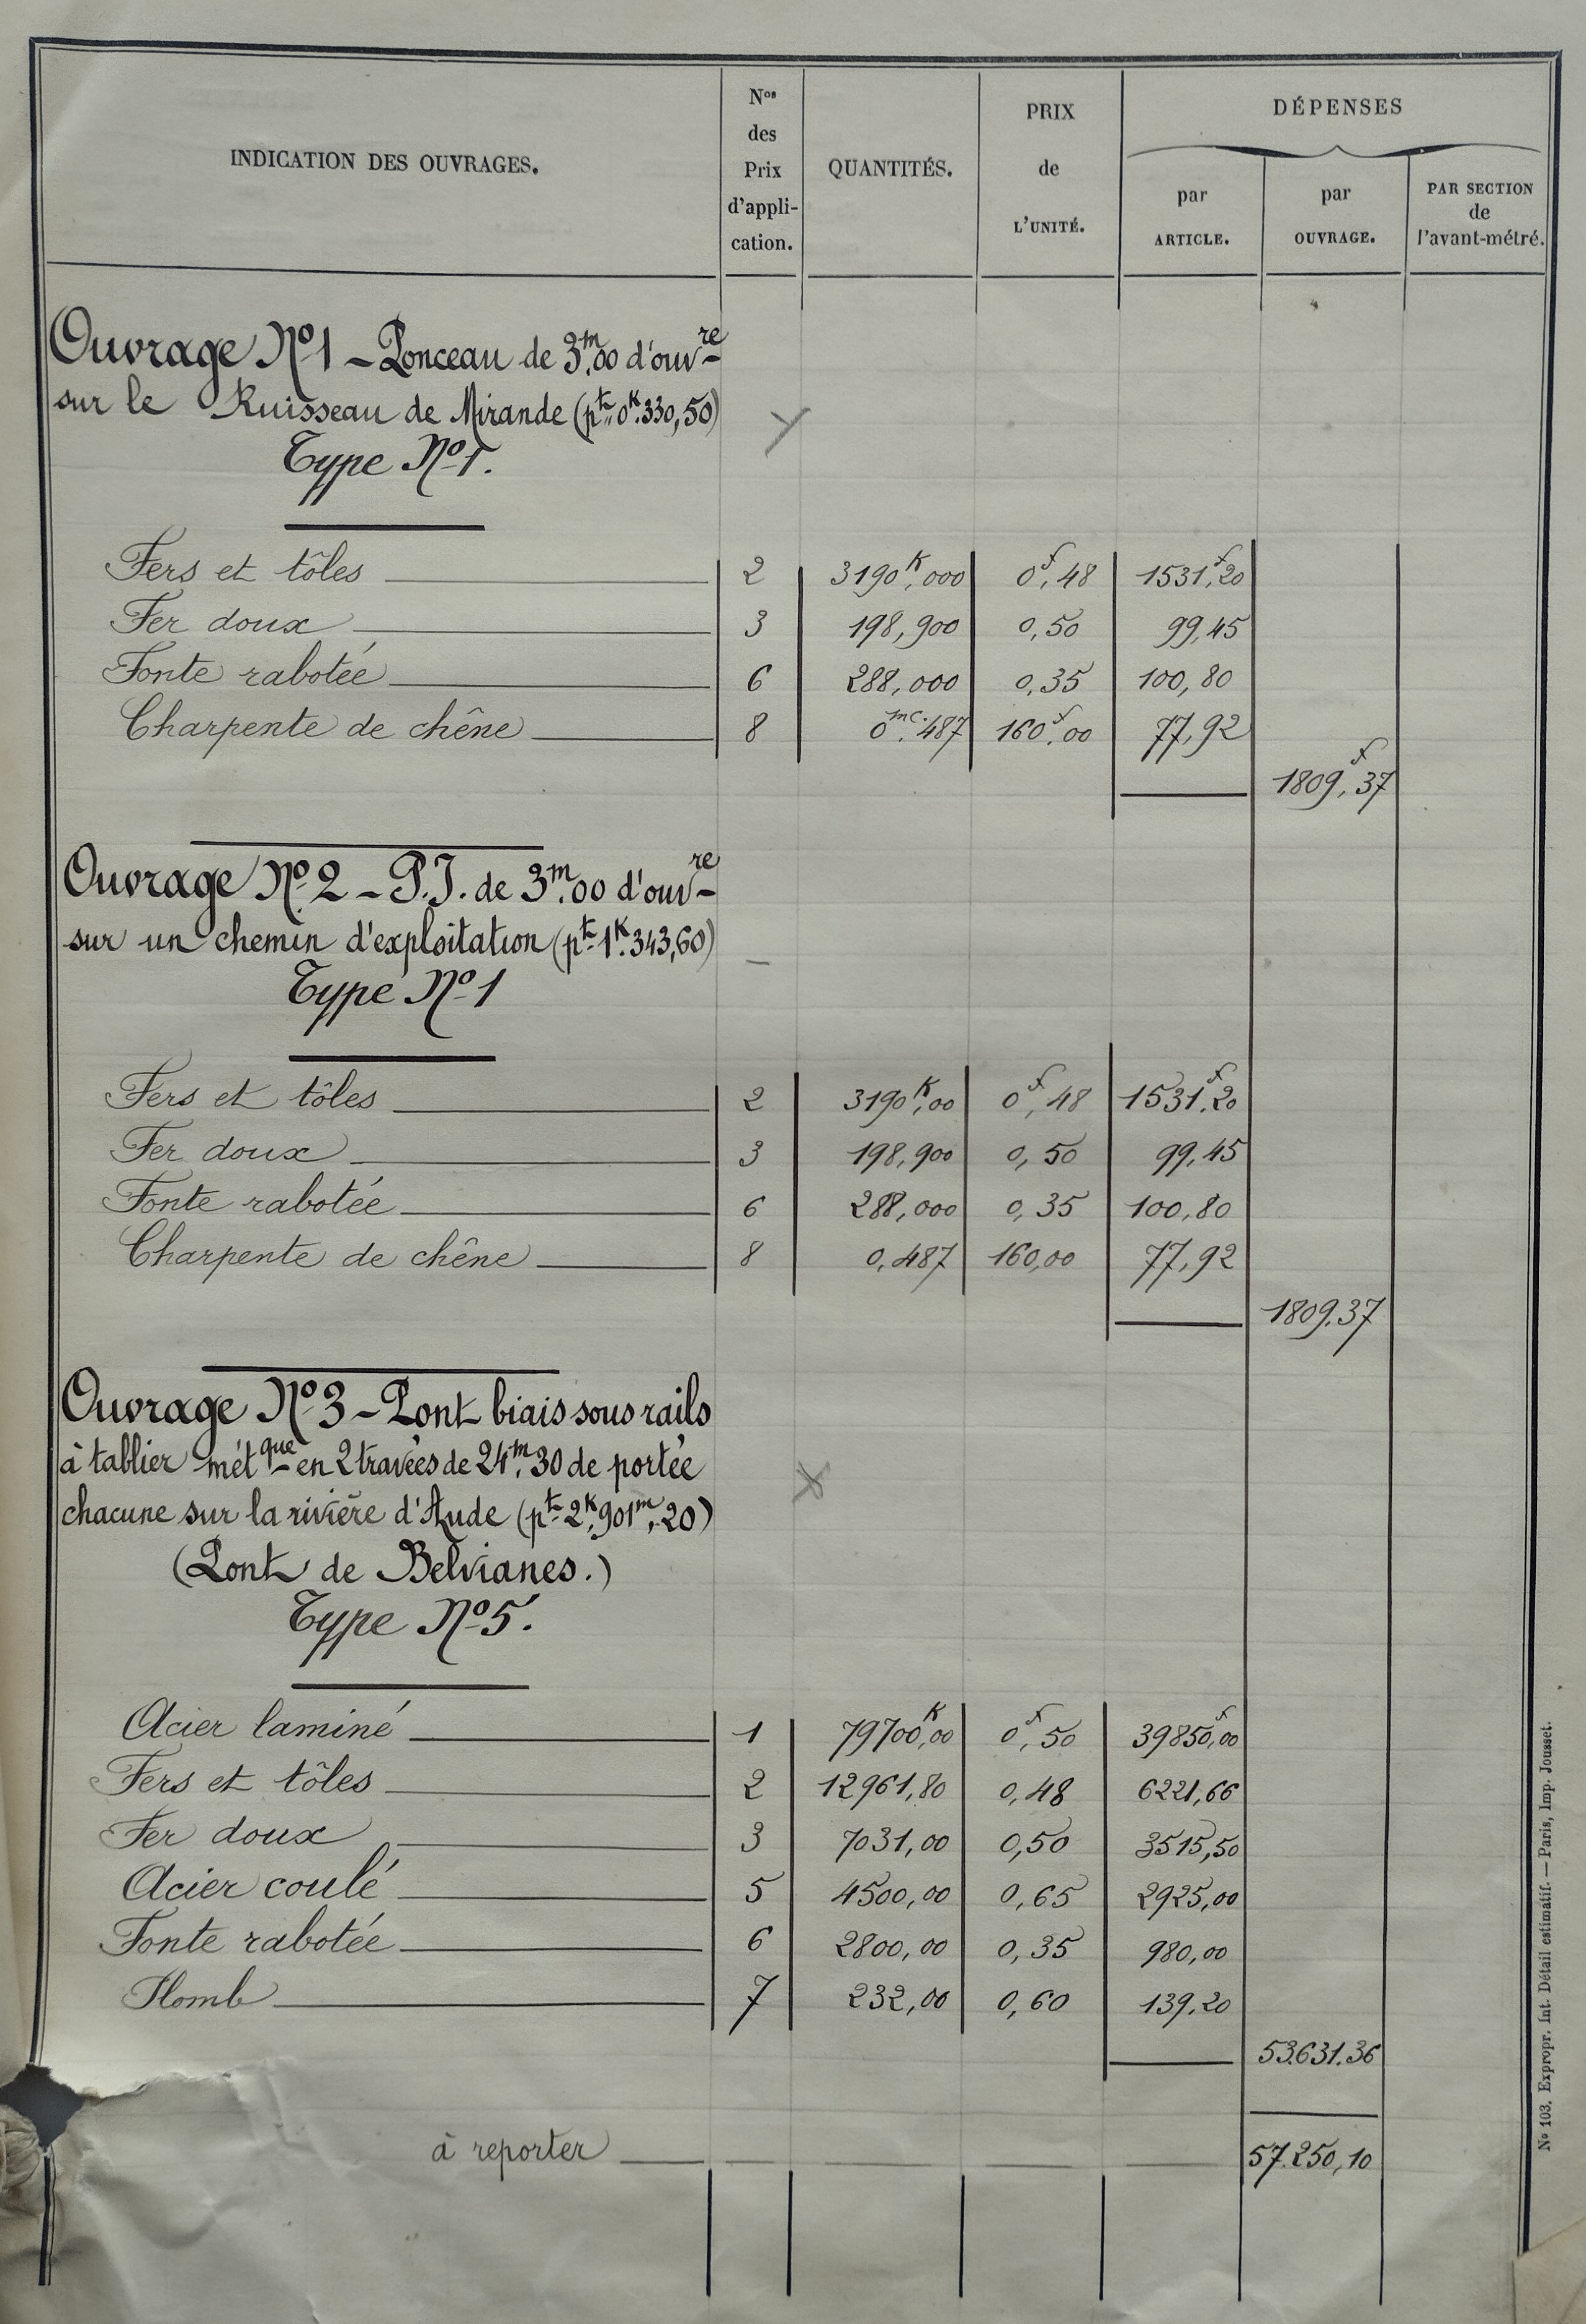 INDICATION DES OUVRAGES.
Nos des Prix d'appli-cation.
QUANTITÉS.
PRIX de L'UNITÉ.
DÉPENSES
par ARTICLE.
par OUVRAGE.
PAR SECTION de l'avant-métré.
Ouvrage No 1 – Ponceau de 3m,00 d'ouvre
sur le Ruisseau de Mirande (pt 0K.330,50)
Type No 1.
Fers et tôles 2 3190K,000 0f,48 1531f,20
Fer doux 3 198,900 0,50 99,45
Fonte rabotée 6 288,000 0,35 100,80
Charpente de chêne 8 0mc.487 160f,00 77,92
1809f,37
Ouvrage No 2 – P.I. de 3m,00 d'ouvre
sur un chemin d'exploitation (pt 1K.343,60)
Type No 1
Fers et tôles 2 3190K,00 0f,48 1531f,20
Fer doux 3 198,900 0,50 99,45
Fonte rabotée 6 288,000 0,35 100,80
Charpente de chêne 8 0,487 160,00 77,92
1809.37
Ouvrage No 3 – Pont biais sous rails
à tablier métque en 2 travées de 24m,30 de portée
chacune sur la rivière d'Aude (pt 2K,901m,20)
(Pont de Belvianes.)
Type No 5.
Acier laminé 1 79700K,00 0f,50 39850f,00
Fers et tôles 2 12961,80 0,48 6221,66
Fer doux 3 7031,00 0,50 3515,50
Acier coulé 5 4500,00 0,65 2925,00
Fonte rabotée 6 2800,00 0,35 980,00
Plomb 7 232,00 0,60 139.20
53.631.36
à reporter 57.250,10
No 103. Expropr. Int. Détail estimatif. — Paris, Imp. Jousset.